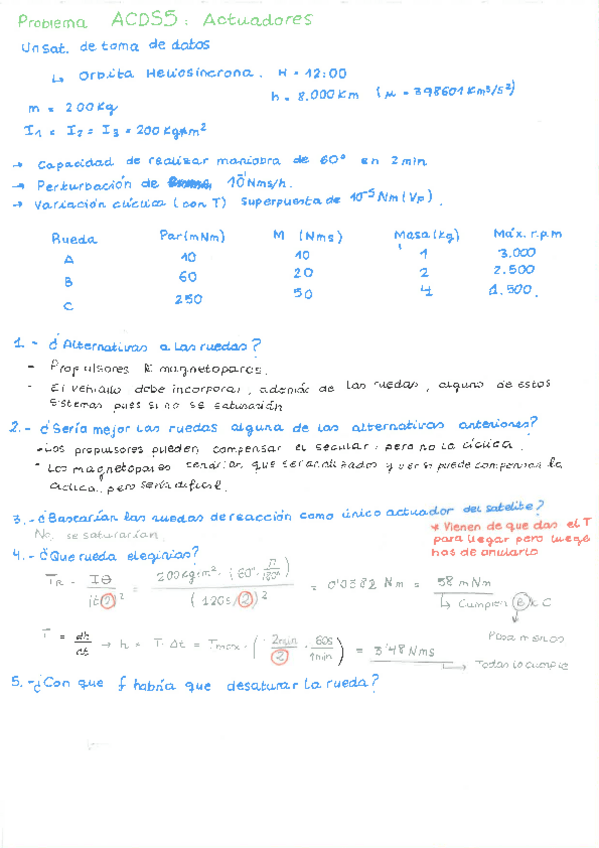 Problema ACDS5: Actuadores
Un sat. de toma de datos
↳ Orbita Heliosíncrona. H = 12:00
h = 8.000 Km (μ = 398601 Km³/s²)
m = 200 Kg
I₁ = I₂ = I₃ = 200 Kg*m²
→ Capacidad de realizar maniobra de 60° en 2 min
→ Perturbación de 10⁻¹ Nms/h.
→ Variación cíclica (con T) superpuesta de 10⁻⁵ Nm (Vp).
Rueda Par(mNm) M (Nms) Masa(Kg) Máx. r.p.m
A 10 10 1 3.000
B 60 20 2 2.500
C 250 50 4 1.500.
1.- ¿Alternativas a las ruedas?
- Propulsores & magnetopares.
- El vehículo debe incorporar, además de las ruedas, alguno de estos
sistemas pues si no se saturación
2.- ¿Sería mejor las ruedas alguna de las alternativas anteriores?
- Los propulsores pueden compensar el secular, pero no la cíclica.
- Los magnetopares tendrían que ser analizados y ver si puede compensar la
cíclica, pero sería difícil.
3.- ¿Bastarían las ruedas de reacción como único actuador del satélite?
No, se saturarían.
* Vienen de que das el T
para llegar pero luego
has de anularlo
4.- ¿Que rueda elegirías?
T_R = Iθ / (t/2)² = 200 Kg·m² · (60° · π/180°) / (120s/2)² = 0'0582 Nm = 58 mNm
↳ Cumplen B y C
Pasa menos
T = dh/dt → h = T·Δt = Tmax · (2min/2 · 60s/1min) = 3'48 Nms
↳ Todas lo cumple
5.- ¿Con que f habría que desaturar la rueda?